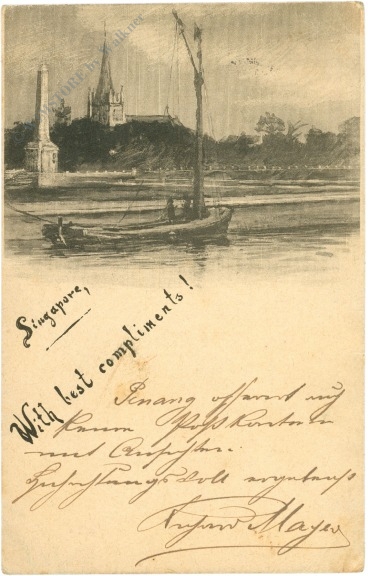 Singapore,
With best compliments!
Penang offeriert
keine Postkarten
mit Ansichten.
Hochachtungsvoll ergebenst
Richard Mayer